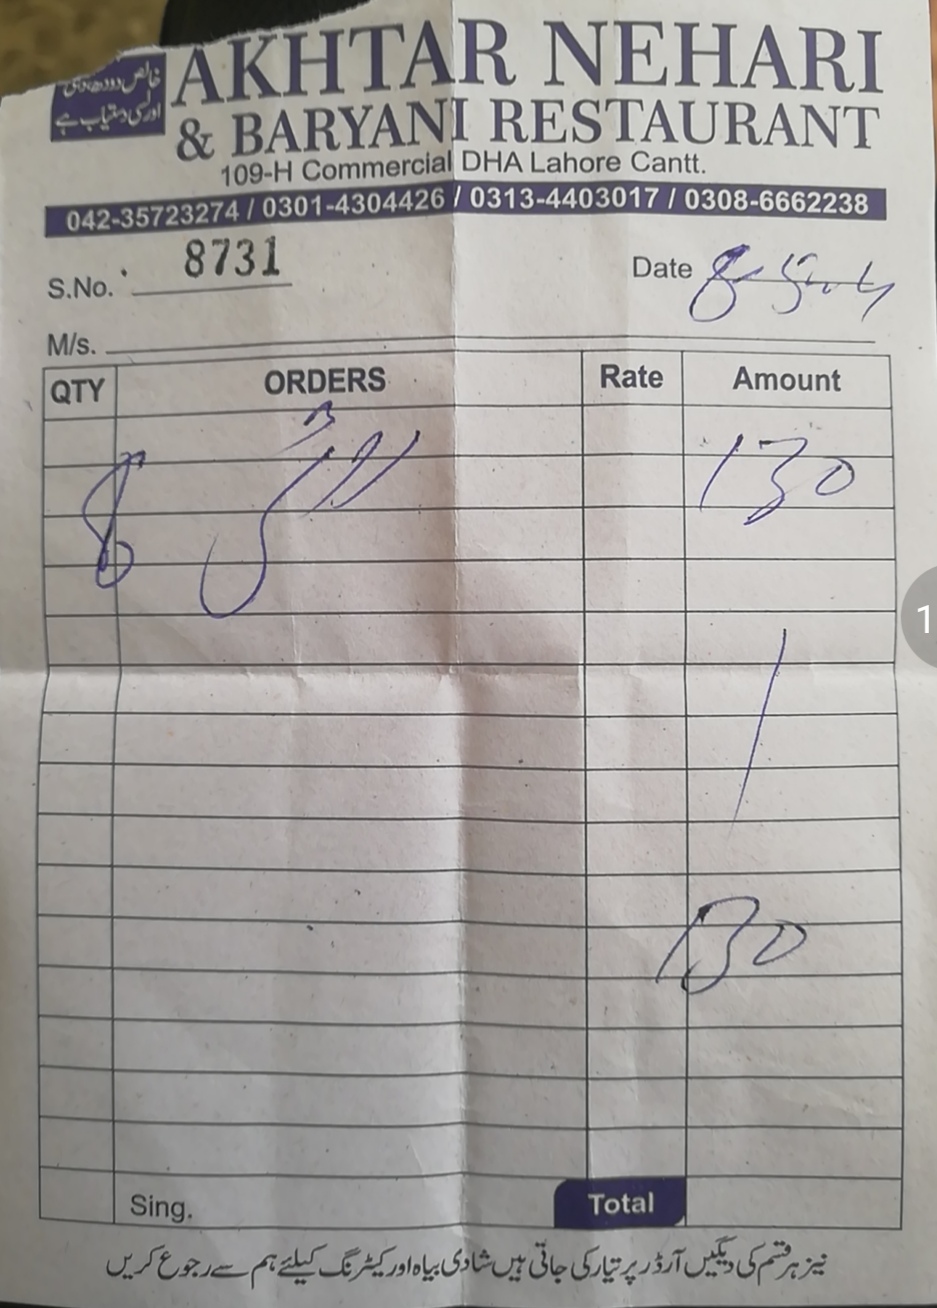 خالص دودھ دہی
اور لسی دستیاب ہے
AKHTAR NEHARI
& BARYANI RESTAURANT
109-H Commercial DHA Lahore Cantt.
042-35723274 / 0301-4304426 / 0313-4403017 / 0308-6662238
S.No. 8731 Date
M/s.
QTY ORDERS Rate Amount
8 130
130
Sing. Total
نیز ہر قسم کی دیگیں آرڈر پر تیار کی جاتی ہیں شادی بیاہ اور کیٹرنگ کیلئے ہم سے رجوع کریں
1